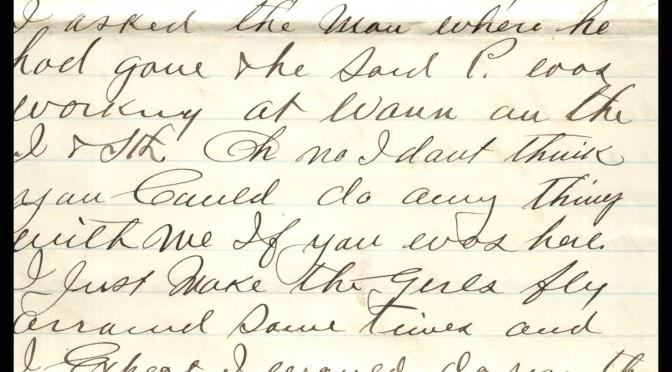 I asked the man where he
had gone & he said P. was
working at Wann on the
I &
Oh no I dont think
you could do any thing
with me If you was here.
I Just make the Gerls fly
arround some times and
I Expect I